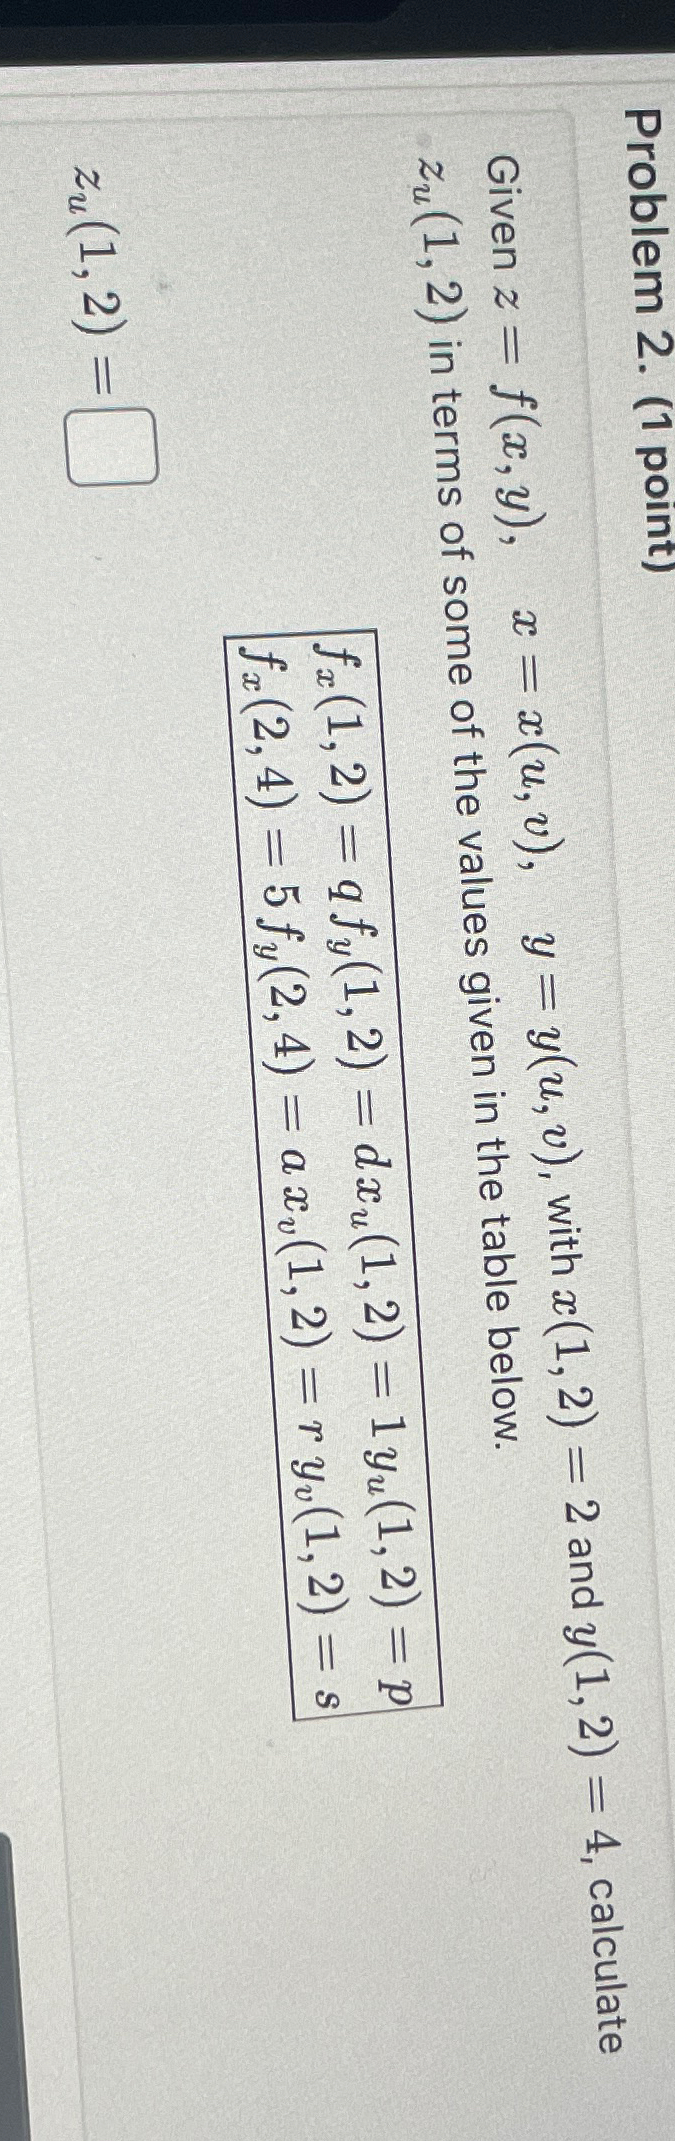 Problem 2. (1 point)
Given z = f(x, y), x = x(u, v), y = y(u, v), with x(1, 2) = 2 and y(1, 2) = 4, calculate
z_u(1, 2) in terms of some of the values given in the table below.
f_x(1, 2) = q f_y(1, 2) = d x_u(1, 2) = 1 y_u(1, 2) = p
f_x(2, 4) = 5 f_y(2, 4) = a x_v(1, 2) = r y_v(1, 2) = s
z_u(1, 2) =